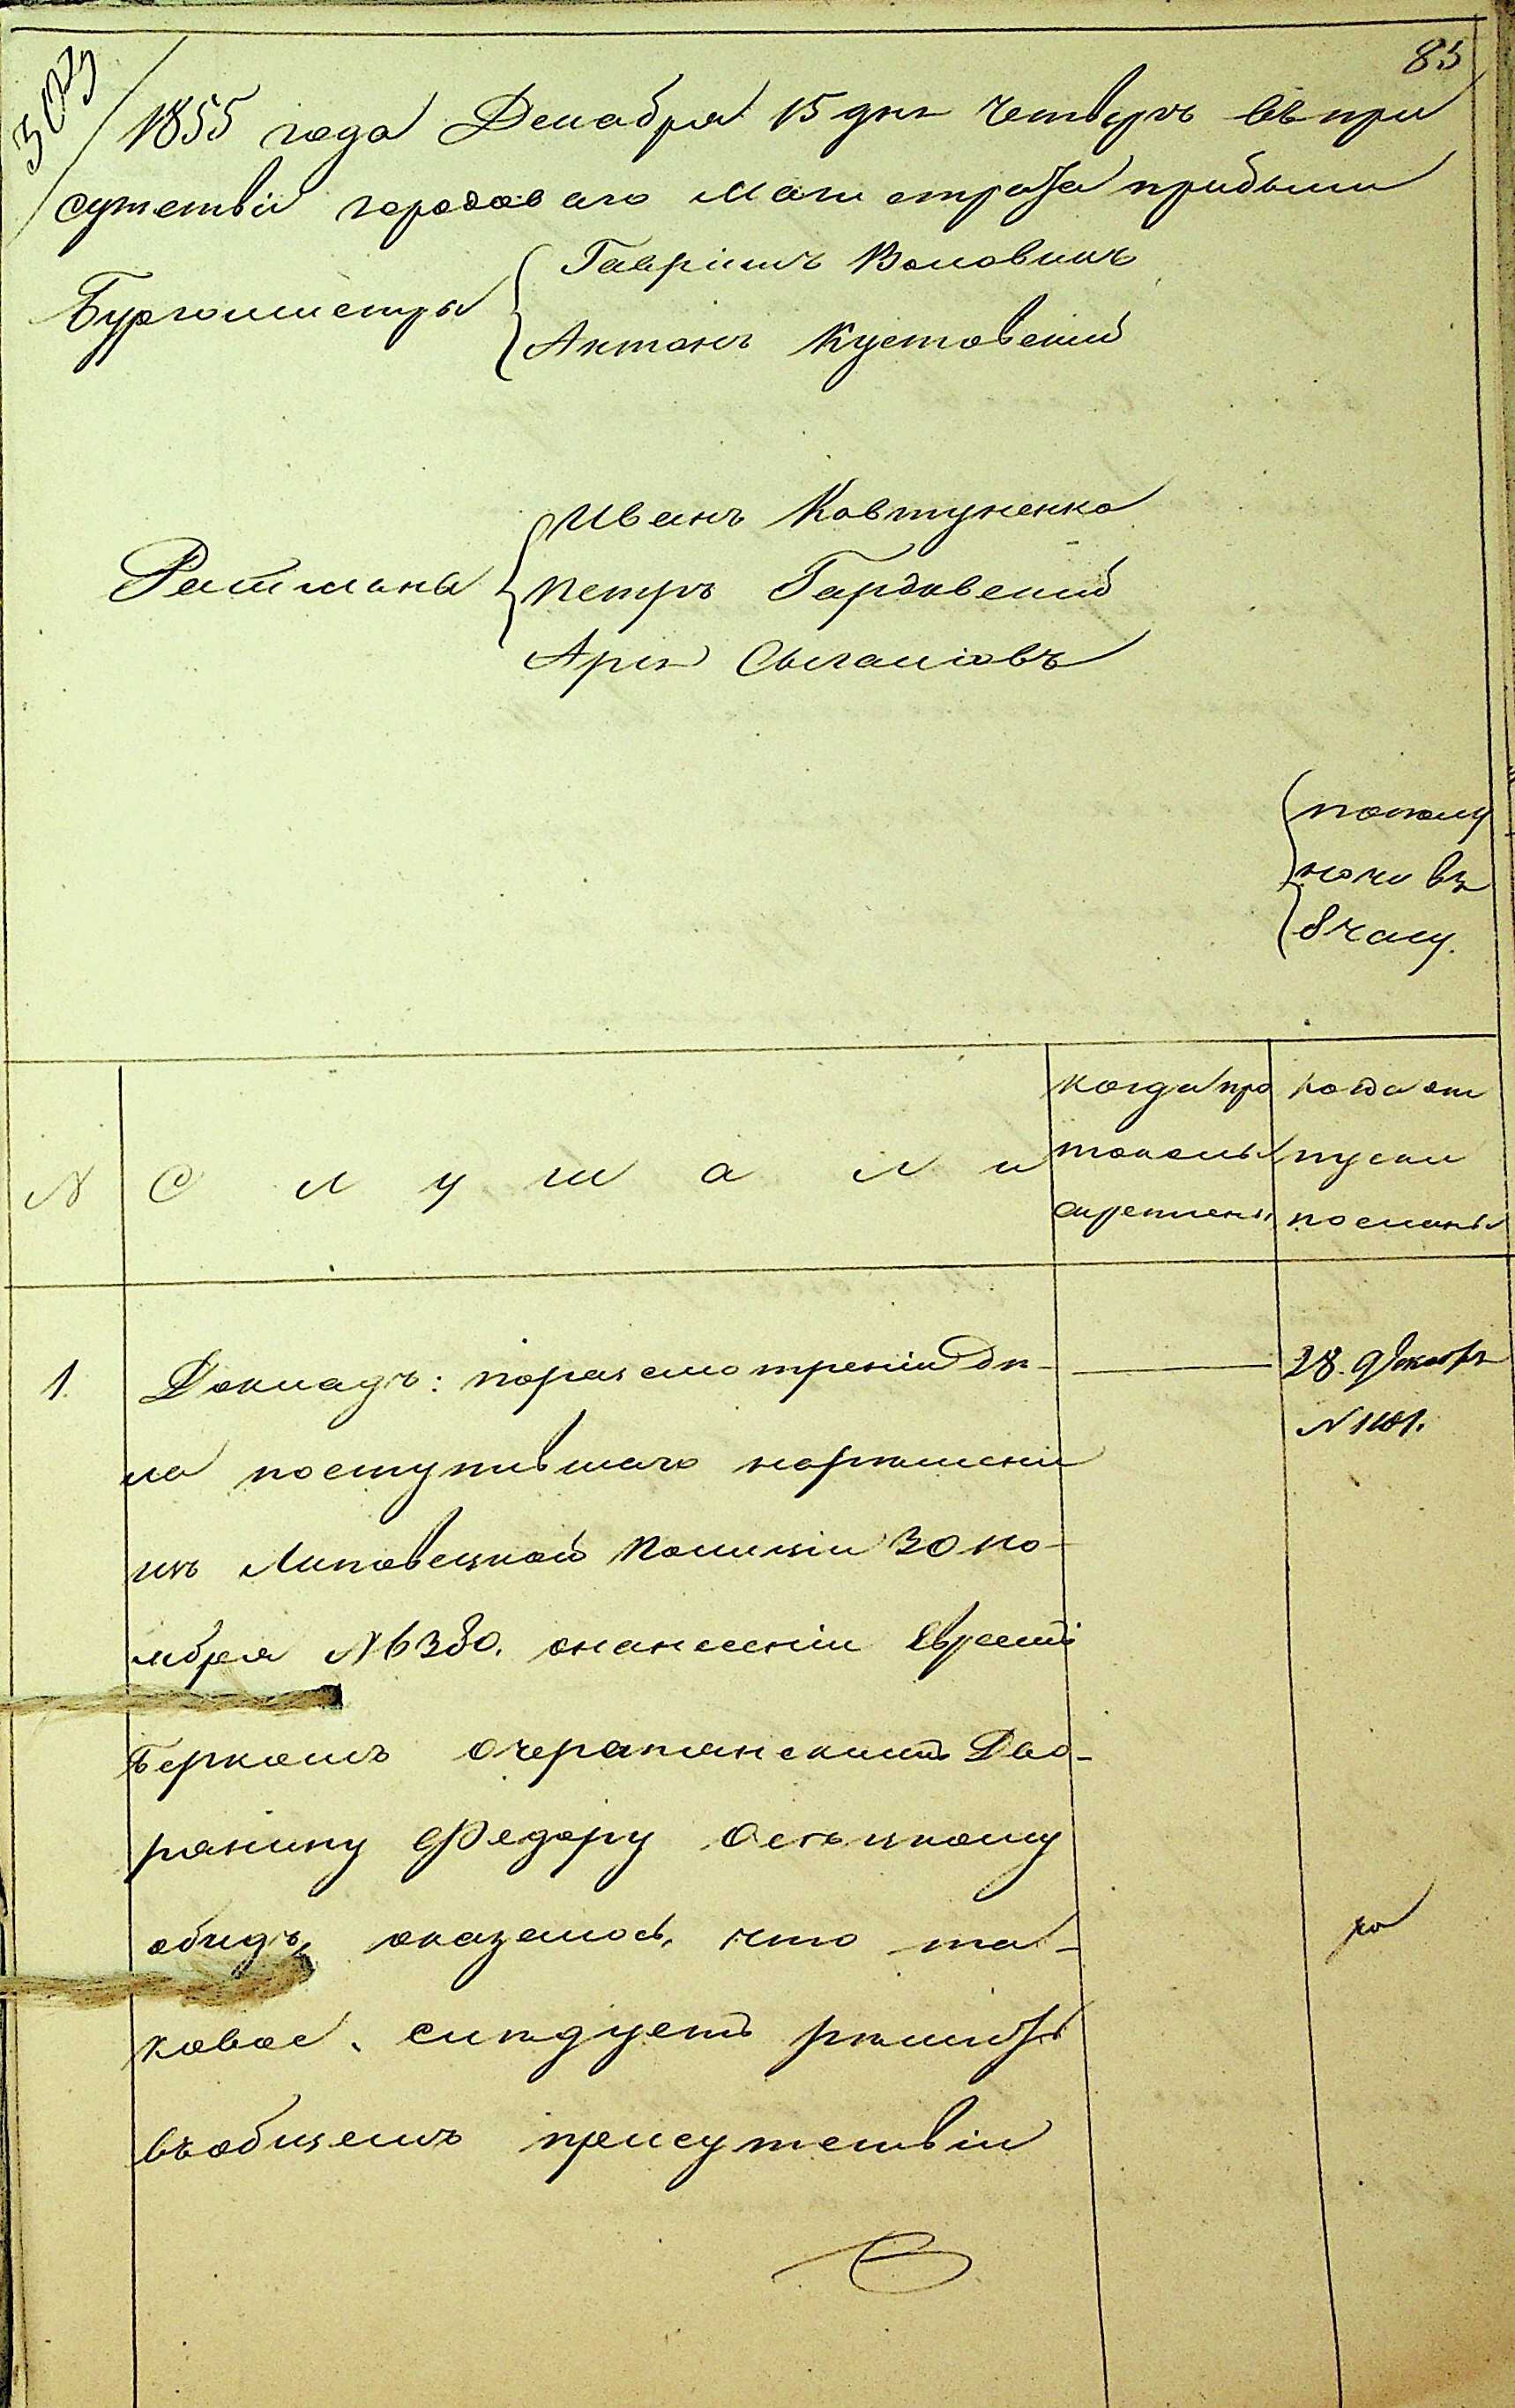 85
1855 года Декабря 15 дня Четвергъ въ при
сутствіи городоваго Магистрата прибыли
Бургомистры
Гавріилъ Воловикъ
Антонъ Кустовскій
Ратманы
Иванъ Ковтуненко
Петръ Гардовский
Арія
пополу
ночи въ
8 часу.
N
Слушали
когда про
токолы
скреплены
когда от
пуски
посланы
1.
Докладъ: поразсмотреніи дѣ-
ла поступившаго нарѣшеніе
изъ Липовецкой Полиціи 30 но-
ября N 6380. онанесеніи Евреемъ
Беркомъ Очеретянскимъ Дво-
рянину Федору Осѣцкому
обидъ, оказалось, что та-
ковое, слѣдуетъ рѣшить
въобщемъ присутствіи
28. Декабря